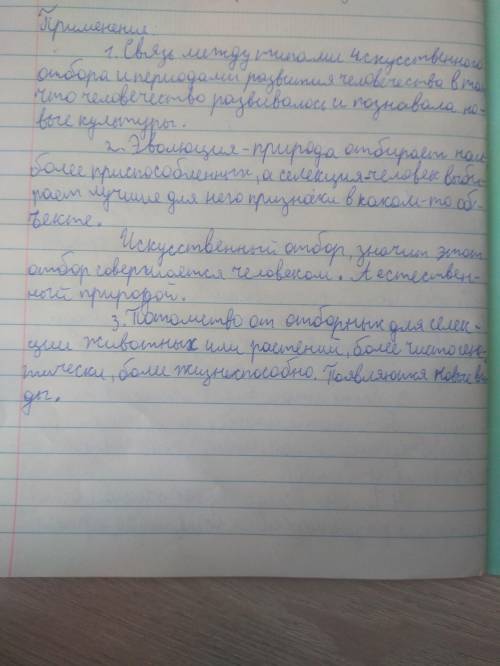 Применение.
1. Связь между типами искусственного
отбора и периодами развития человечества в том
что человечество развивалось и познавала но-
вые культуры.
2. Эволюция - природа отбирает наи
более приспособленных, а селекция-человек выби-
рает лучшие для него признаки в каком-то об-
ъекте.
Искусственный отбор, значит этот
отбор совершается человеком. А естествен-
ный природой.
3. Потомство от отборных для селек-
ции животных или растений, более чистоген-
тически, боли жизниспособно. Появляются новые ви
ды.